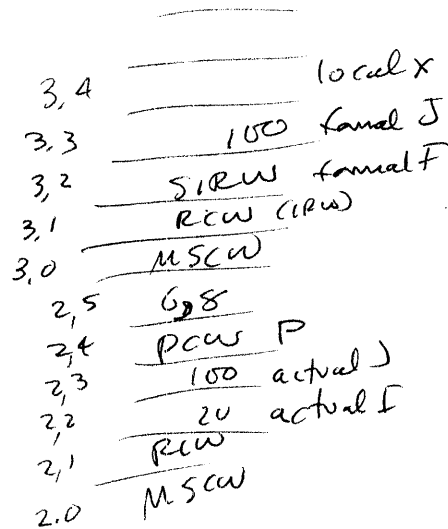 3,4 local x
3,3 100 formal J
3,2 SIRW formal F
3,1 RCW (IRW)
3,0 MSCW
2,5 6,8
2,4 PCW P
2,3 100 actual J
2,2 20 actual I
2,1 RCW
2.0 MSCW